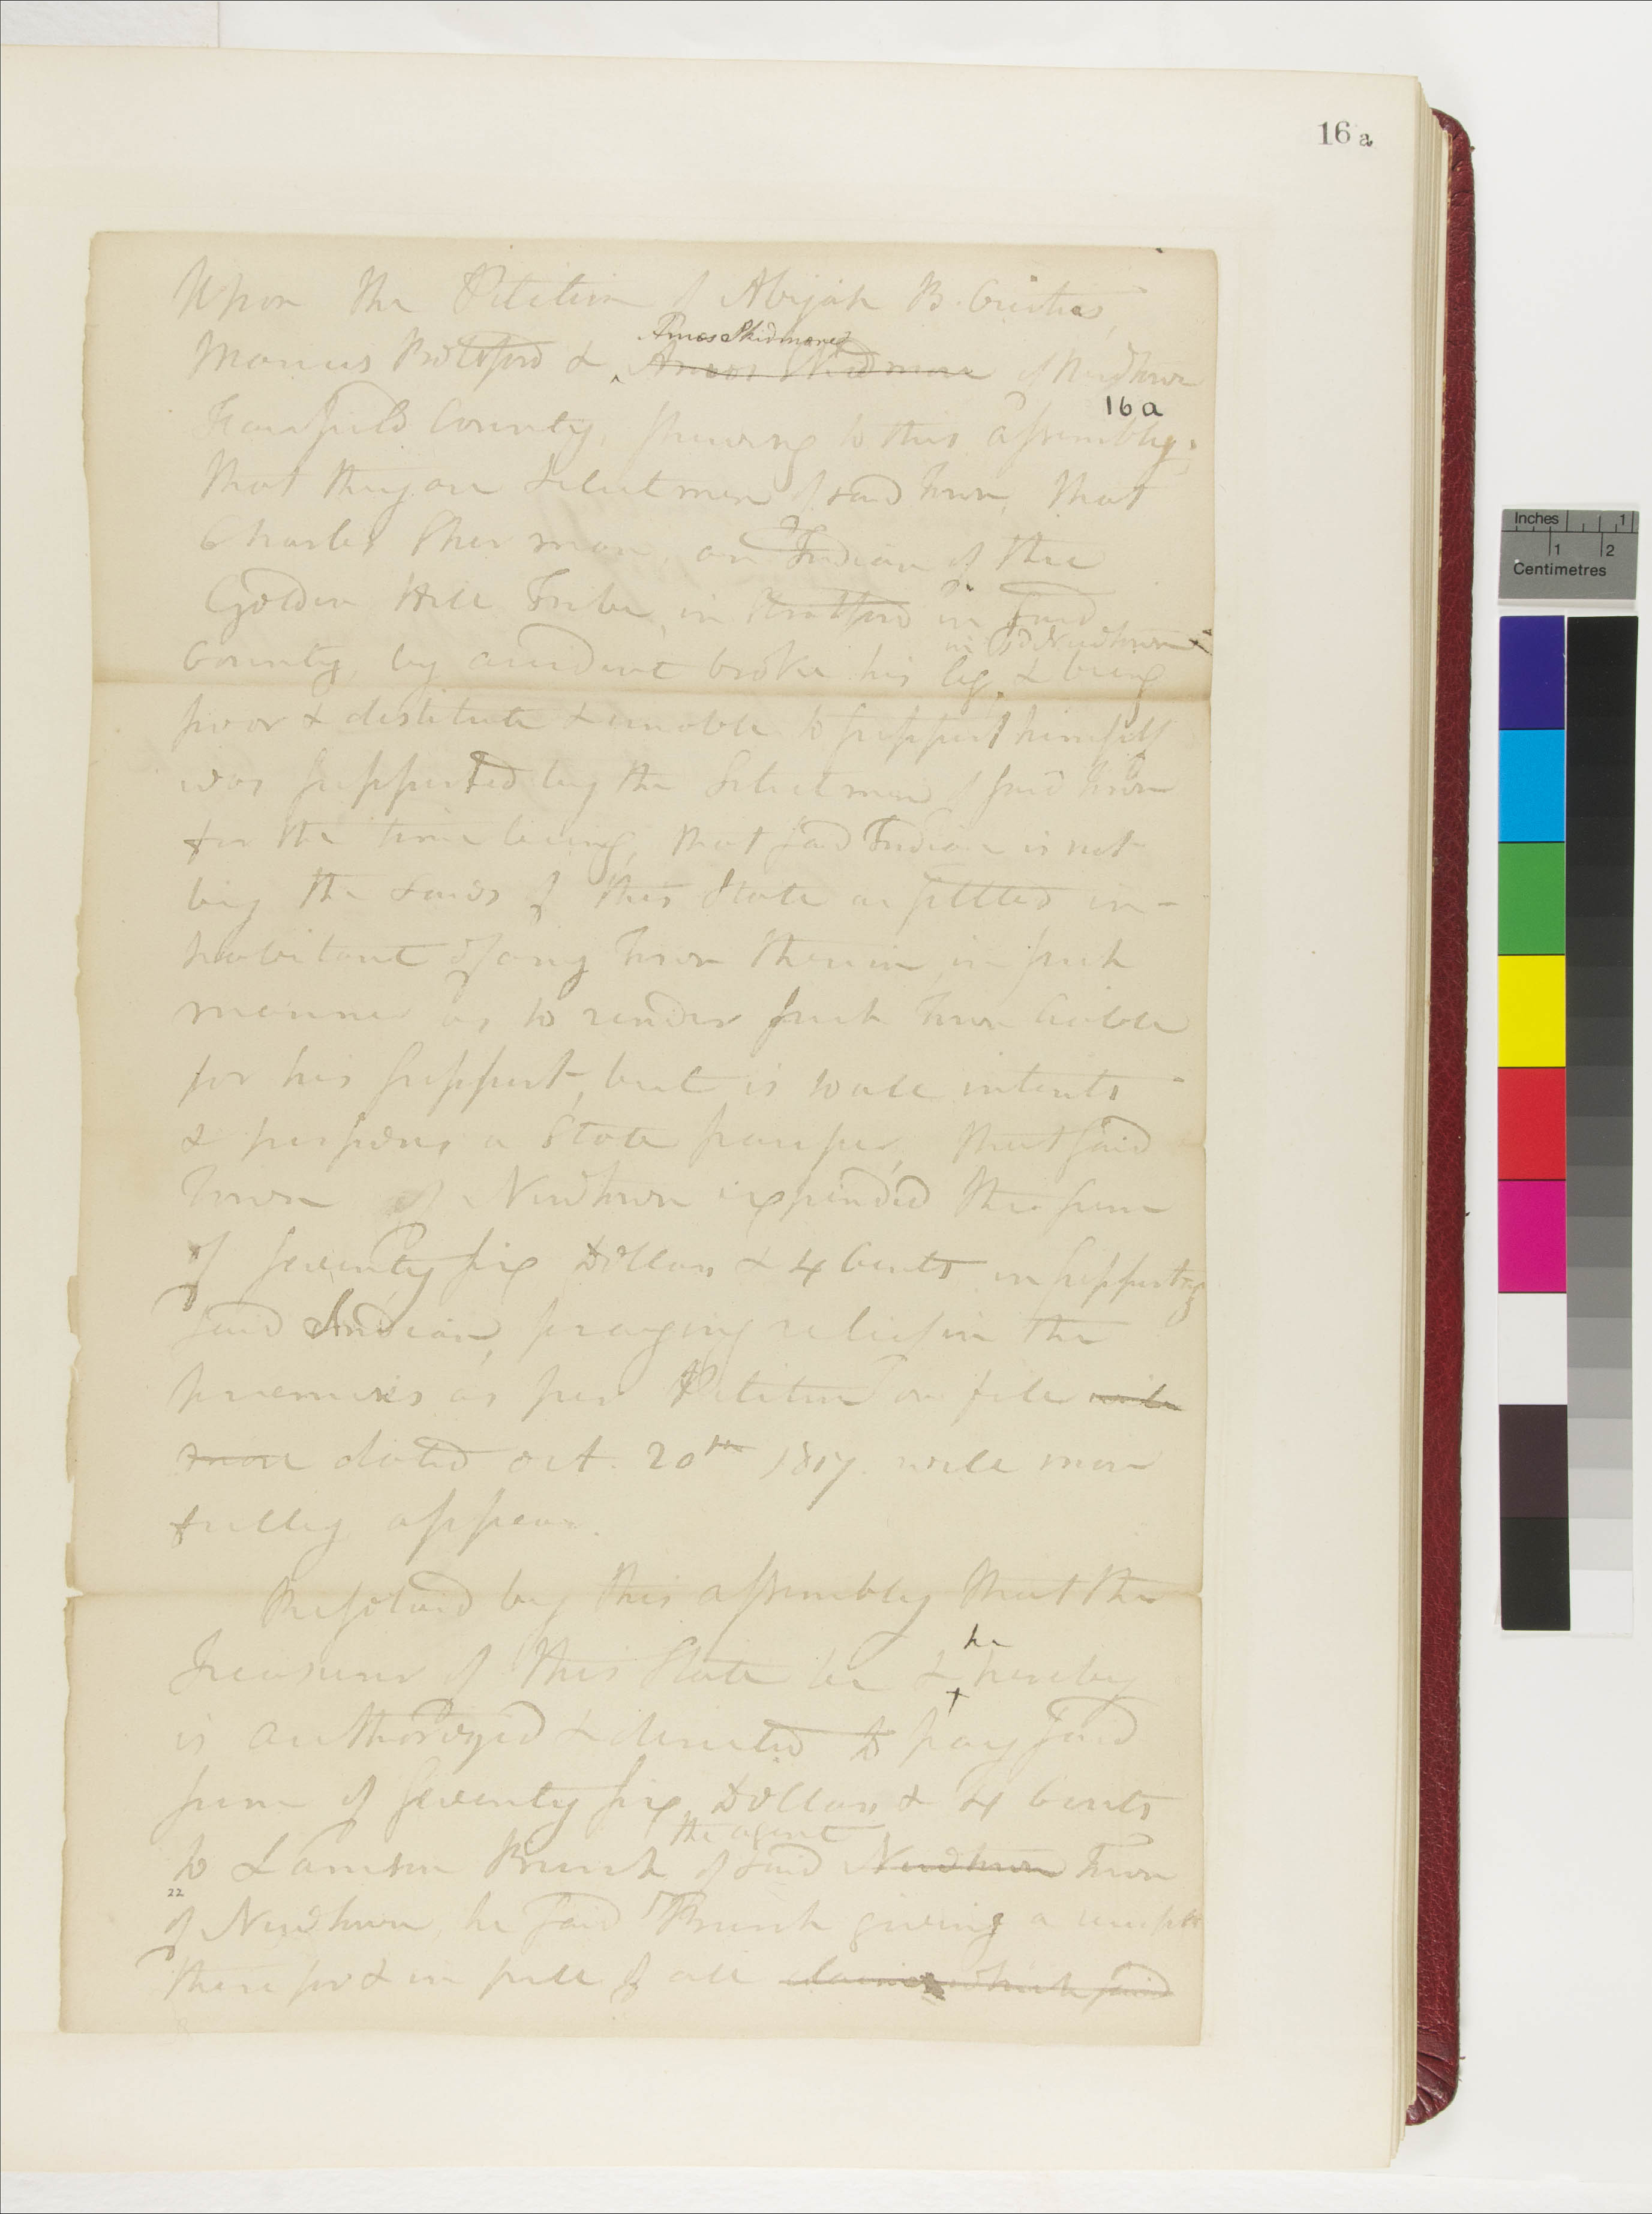 16 a
Upon the Petition of Abijah B. Curtiss,
Marcus Botsford & Amos Skidmore of Newtown
Amos Skidmore
16a
Fairfield County, shewing to this assembly,
that they are Selectmen of said Town, that
Charles Sherman, an Indian of the
Golden Hill Tribe, in Stratford in said
in sd Newtown
County, by accident broke his leg, & being
poor & destitute & unable to support himself
was supported by the Selectmen of said Town
for the time being, that said Indian is not
by the Laws of this State a settled in-
habitant of any Town therein, in such
manner as to render such Town liable
for his support, but is to all intents
& purposes a State pauper, that said
Town of Newtown expended the sum
of seventy six Dollars & 4 Cents in supporting
said Indian, praying relief in the
premises as per Petition on file will
more dated Oct. 20th 1817. will more
fully appear.
Resolved by this assembly that the
he
Treasurer of this State be & hereby
is authorized & directed to pay said
sum of seventy six Dollars & 4 Cents
the agent
to Lamson Birch of said Newtown Town
22
of Newtown, he said Birch giving a receipt
therefor & in full of all claims which said
Inches 1
1 2
Centimetres